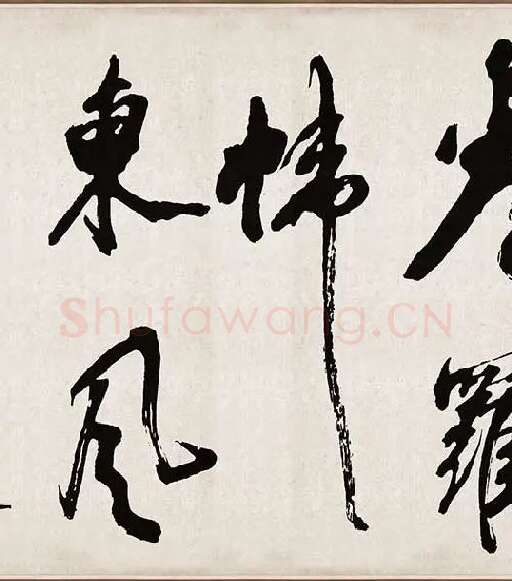 羅
幃
東風
Shufawang.CN